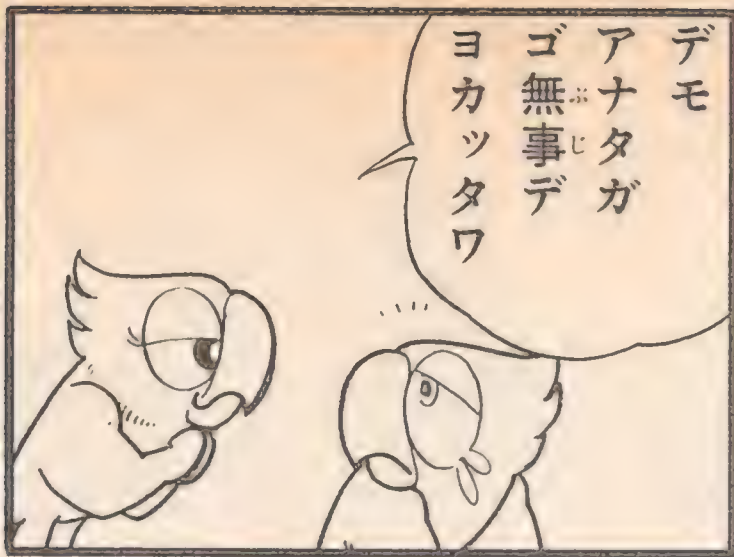 デモ
アナタガ
ゴ無事デ
ぶじ
ヨカッタワ